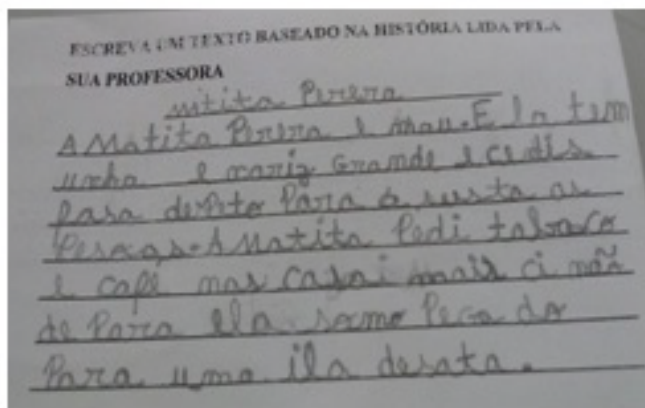 ESCREVA UM TEXTO BASEADO NA HISTÓRIA LIDA PELA
SUA PROFESSORA
mtita Perera
A Matita Perera e mau. E la tem
unha e nariz Grande e ce dis
Para a susta as
Pesoas. A Matita Pedi tabaco
e café nas casa i mais ci não
de Para ela
Para uma ila desata.